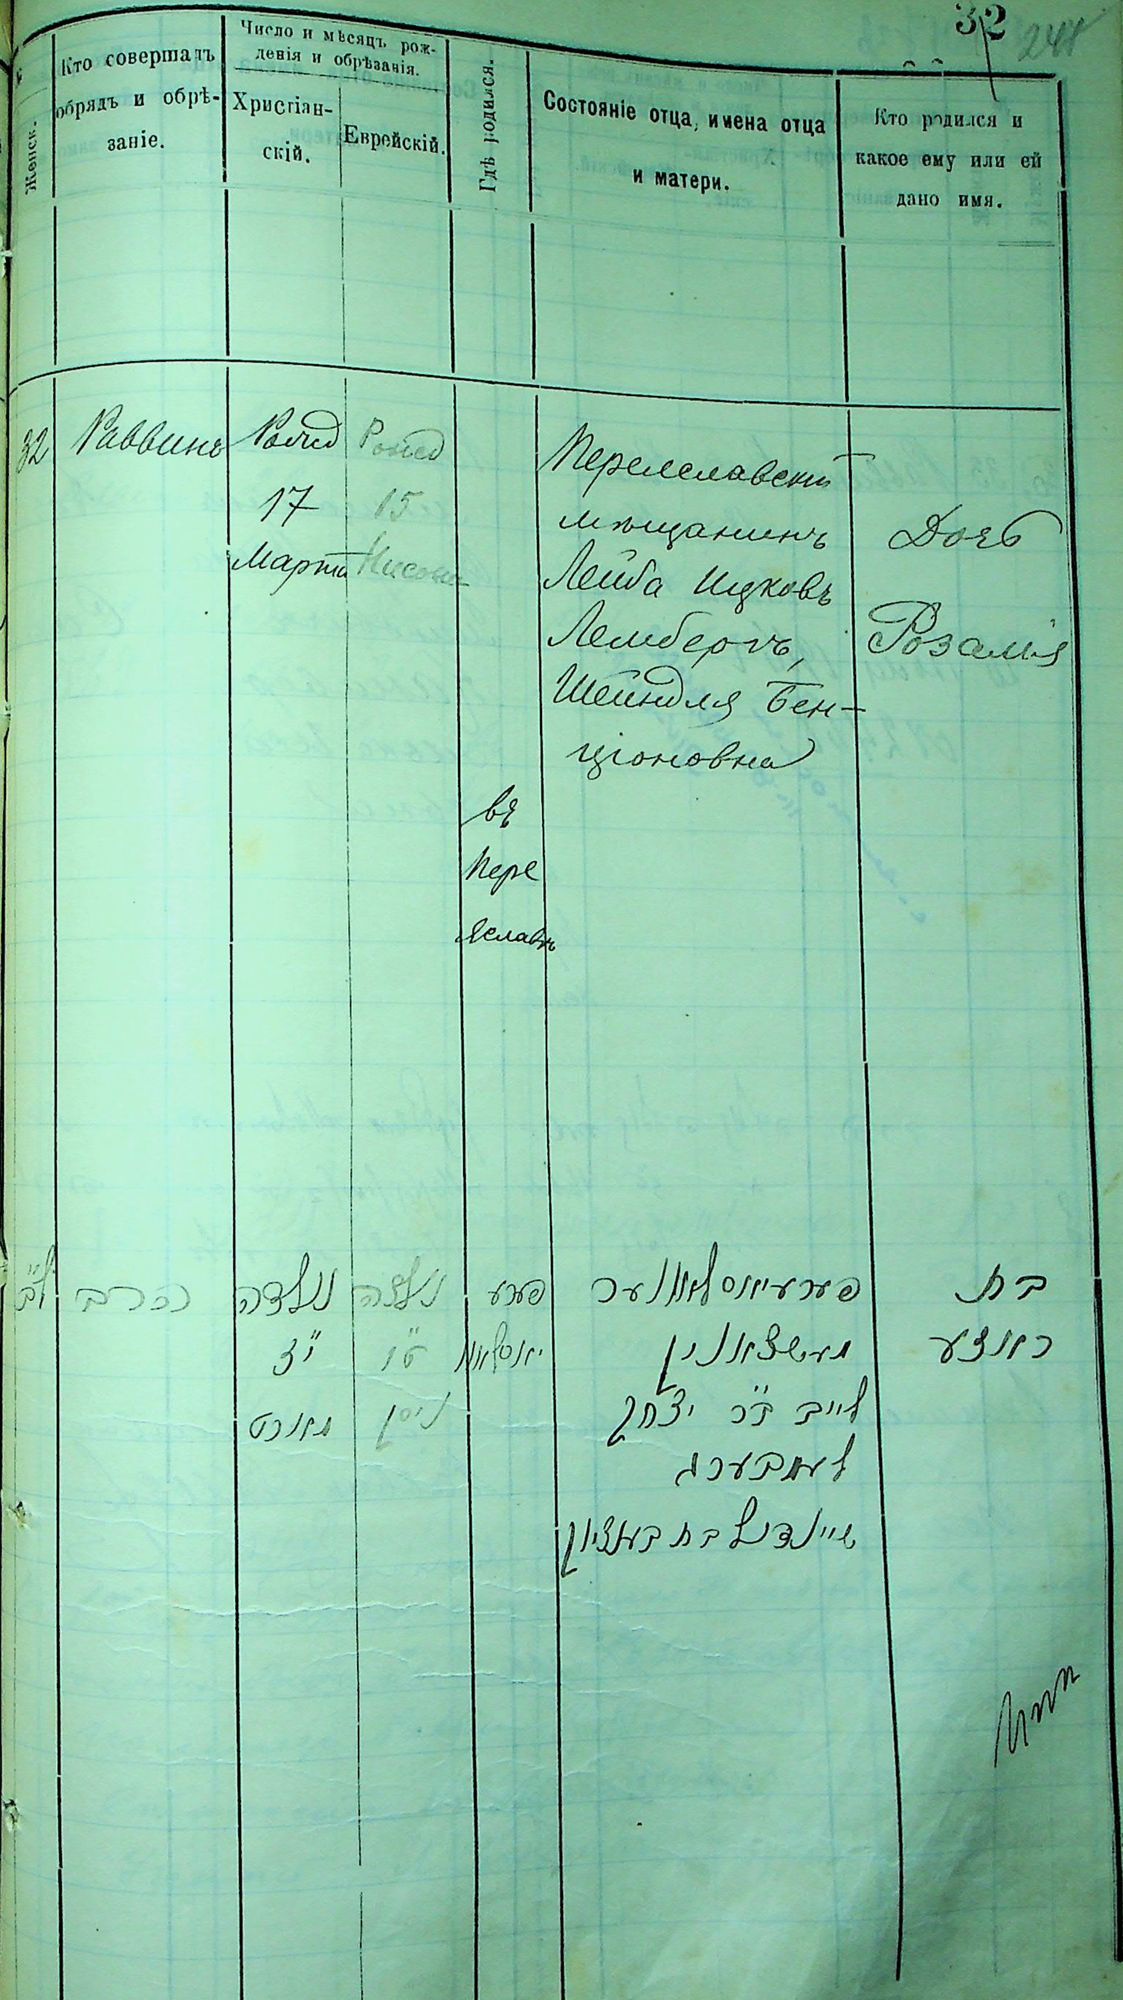 32
Женск.
Кто совершалъ
обрядъ и обрѣ-
заніе.
Число и мѣсяцъ рож-
денія и обрѣзанія.
Христіан-
скій.
Еврейскій.
Гдѣ родился.
Состояніе отца, имена отца
и матери.
Кто родился и
какое ему или ей
дано имя.
32
Раввинъ
Рожд
17
Марта
Рожд
15
Нисона
въ
Пере
яславѣ
Переяславскій
мѣщанинъ
Лейба Ицковъ
Лембергъ,
Шейндля Бен-
ціоновна
Дочь
Розалія
ל״ב
הרב
נולדה
י״ז
מארט
נולדה
ט״ו
ניסן
פערע
יאסלאוו
פערעיאסלאוונער
מעשצאנין
לייב ב״ר יצחק
לעמבערג
שיינדל בת בענציון
בת
ראזע